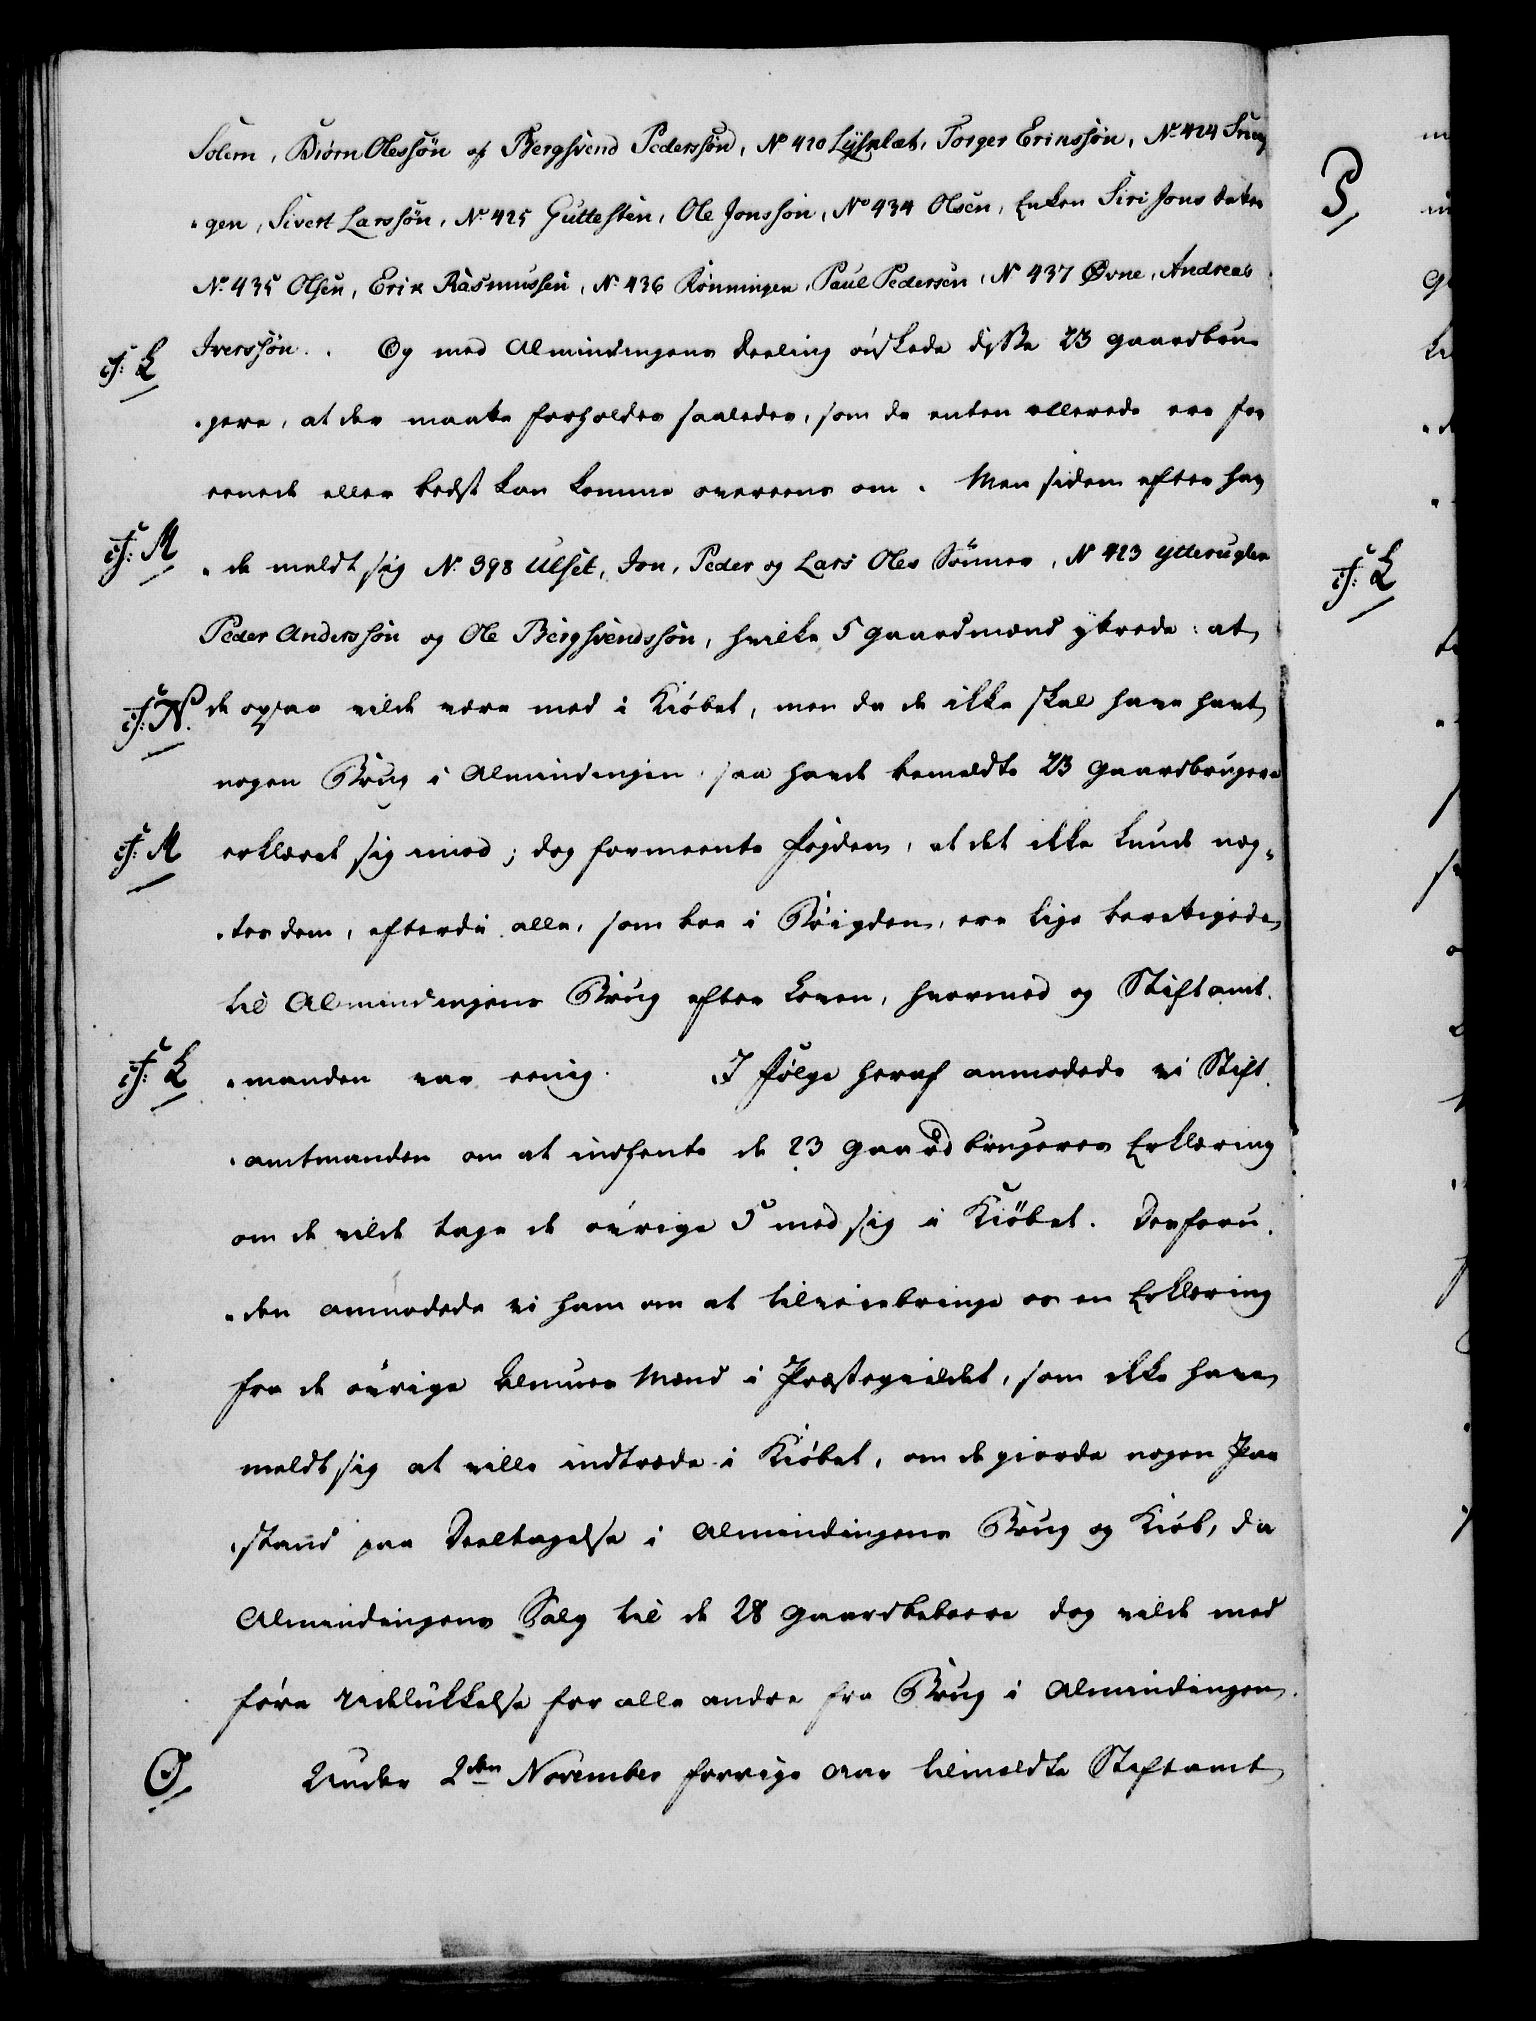 Solem, Biørn Olessøn og Bergsvend Pederssøn, No 420 Lÿsnlæt, Torger Erikssøn, No 424
gen, Sivert Larssøn, No 425 Guttesten, Ole Jonssøn, No 434 Olsen, Enken Siri Jons datter
No 435 Olsen, Erik Rasmussen, No 436 Rönningen, Paul Pedersen, No 437 Øvne, Andreas
cf: L Iverssøn. Og med Almindingens Deeling ønskede disse 23 gaardbru-
gere, at der maatte forholdes saaledes, som de enten allerede ere for
eenede eller bedst kan komme overeens om. Men siden efter hav
cf: M de meldt sig No 398 Ulset, Jon, Peder og Lars Oles Sönner, No 423 Ytterugler
Peder Anderssøn og Ole Bergsvendssøn, hvilke 5 gaardmænd ytrede: at
cf: N. de ogsaa vilde være med i Kiøbet, men da de ikke skal have havt
nogen Brug i Almindingen, saa havde bemeldte 23 gaardbrugere
cf: M erklæret sig imod; dog formeente Fogden, at det ikke kunde næg-
tes dem, efterdi alle, som boe i Bøigden, ere lige berettigede
til Almindingens Brug efter Loven, hvormed og Stiftamt-
cf: L manden var eenig. I Følge heraf anmodede vi Stift
amtmanden om at indhente de 23 gaardbrugeres Erklæring
om de vilde tage de øvrige 5 med sig i Kiöbet. Desforu-
den anmodede vi ham om at tilveiebringe os en Erklæring
fra de øvrige Almues Mænd i Præstegieldet, som ikke have
meldt sig at ville indtræde i Kiöbet, om de giorde nogen Paa
stand paa Deeltagelse i Almindingens Brug og Kiöb, da
Almindingens Salg til de 28 gaardbeboere dog vilde med
føre Udelukkelse for alle andre fra Brug i Almindingen.
O Under 2den November forrige Aar tilmeldte Stiftamt
P
cf: L